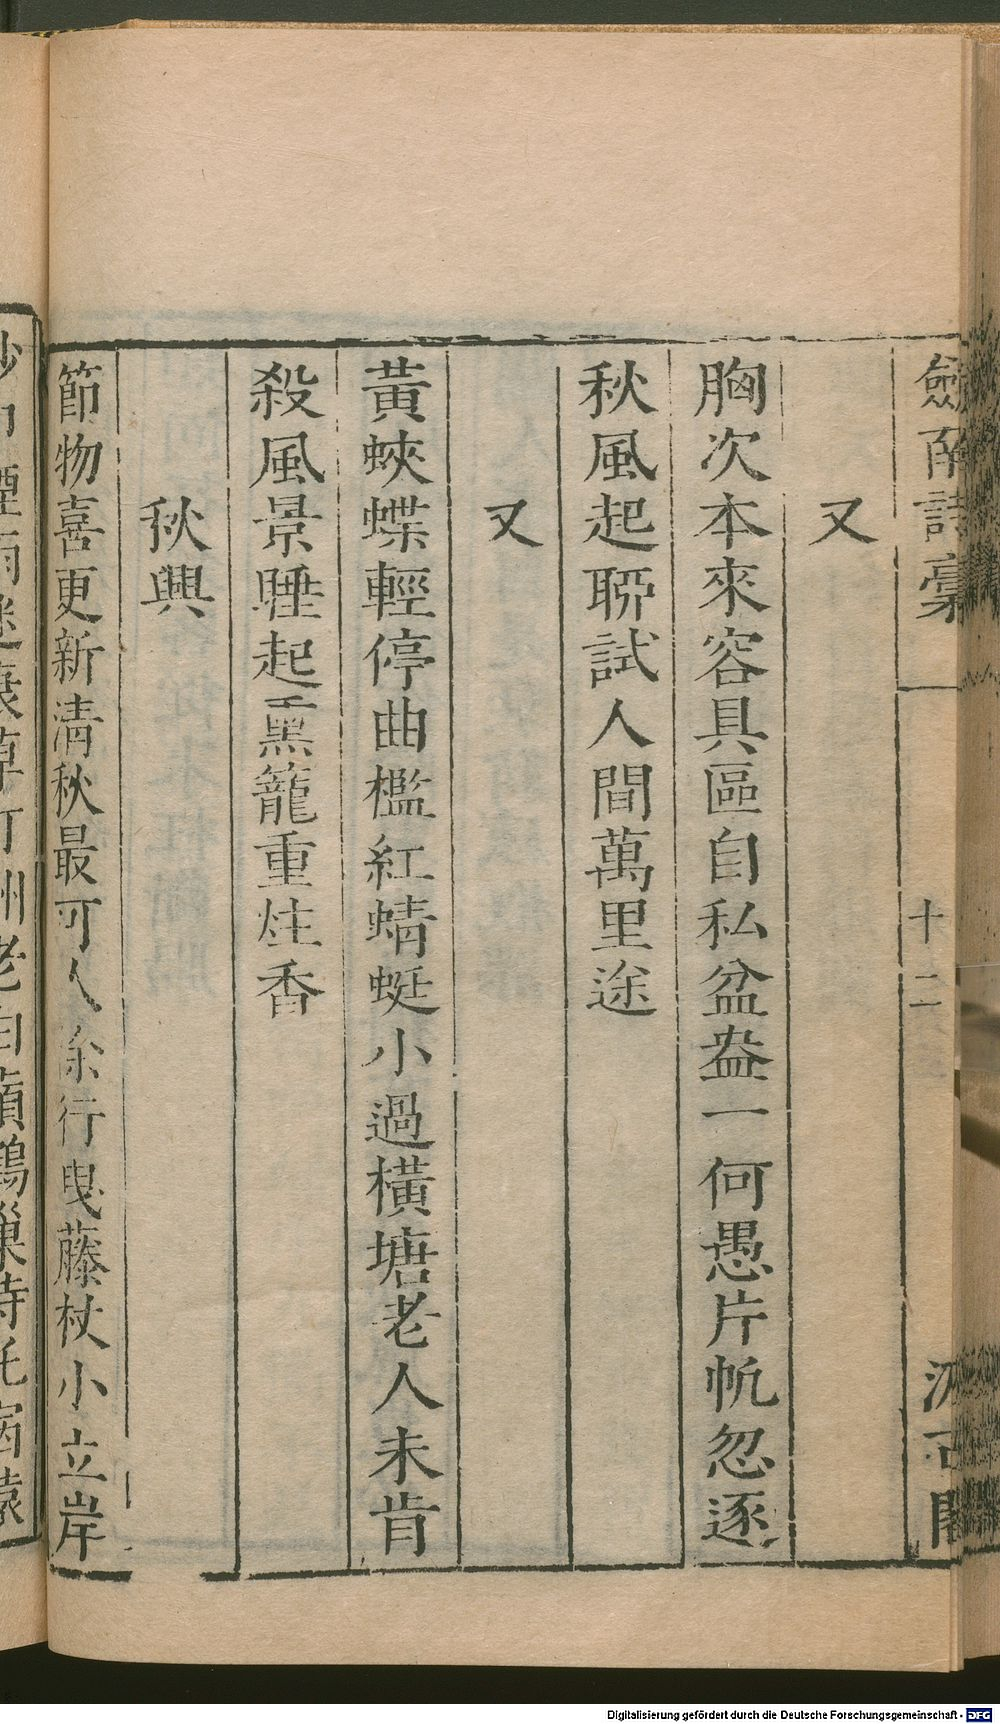 劒南詩稾
十二
汲古閣
又
胸次本來容具區自私盆盎一何愚片帆忽逐
秋風起聊試人間萬里途
又
黃蛺蝶輕停曲檻紅蜻蜓小過橫塘老人未肯
殺風景睡起熏籠重炷香
秋興
節物喜更新淸秋最可人徐行曳藤杖小立岸
Digitalisierung gefördert durch die Deutsche Forschungsgemeinschaft - DFG